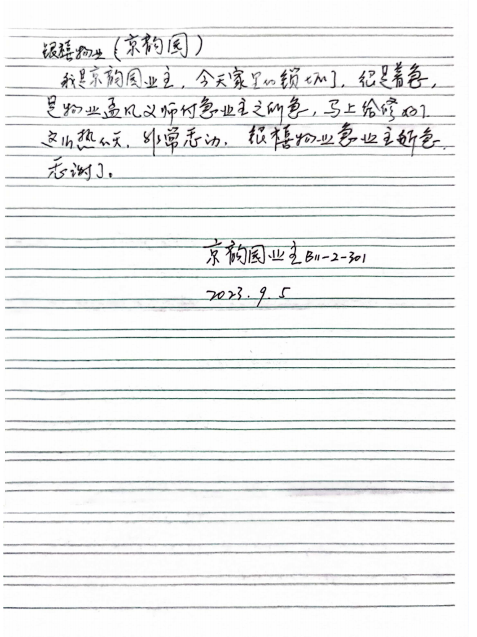 银禧物业(京韵园)
我是京韵园业主，今天家里的锁坏了，很是着急，
是物业孟凡义师付急业主之所急，马上给修好了
这们热心天，非常感动，银禧物业急业主所急
感谢了。
京韵园业主B11-2-301
2023.9.5